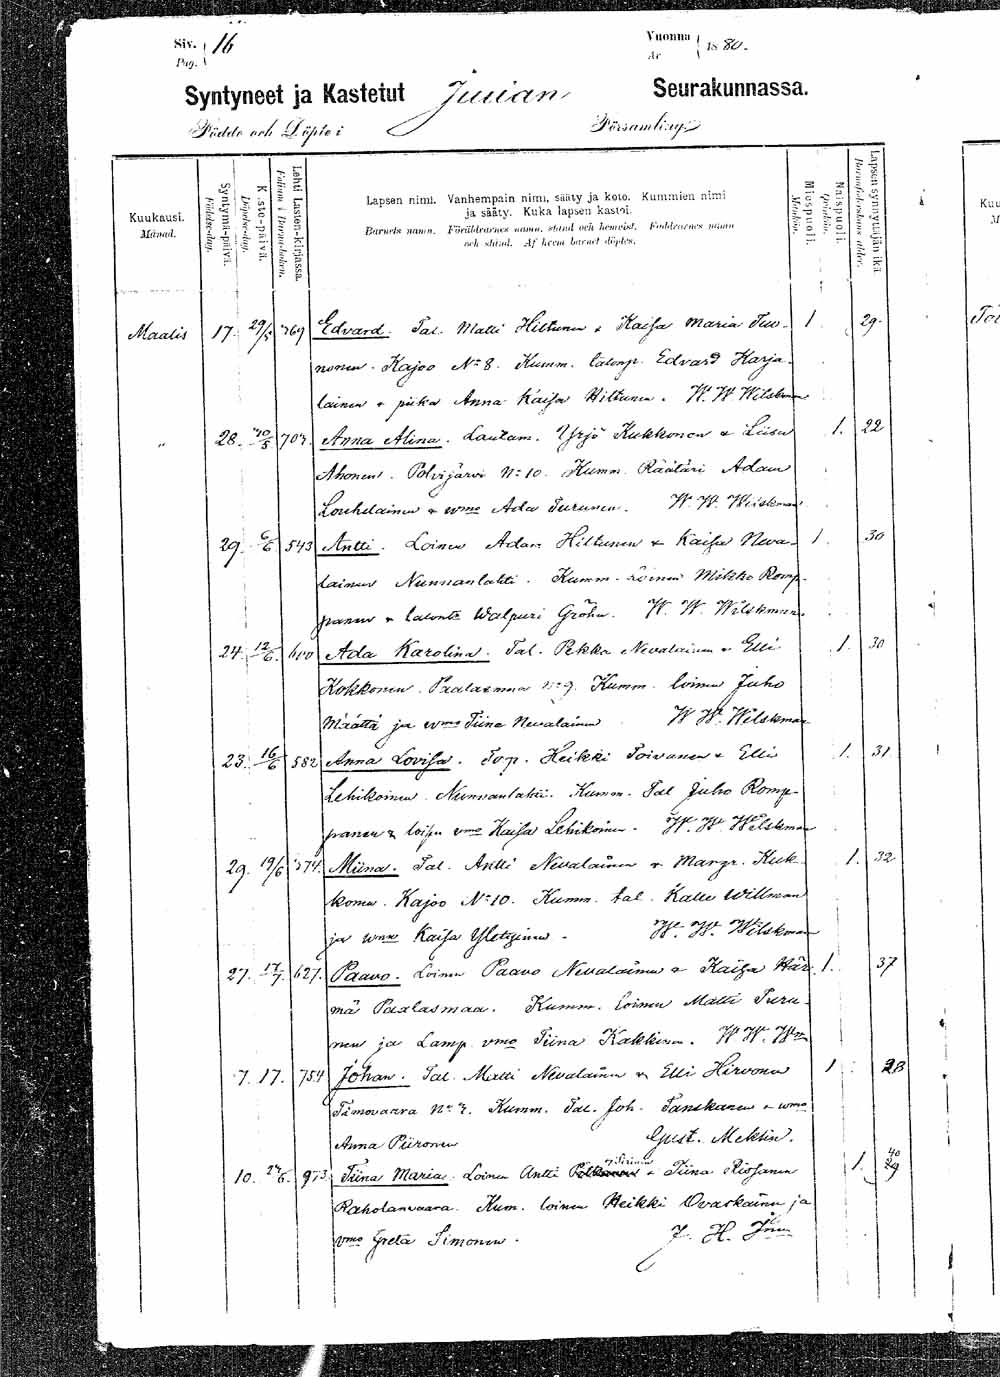 Siv. 16 Vuonna 1880.
Pag. År
Syntyneet ja Kastetut Juuan Seurakunnassa.
Födde och Döpte i Församling
Kuukausi. Månad.
Syntymä-päivä. Födelse-dag.
Kaste-päivä. Döpelse-dag.
Lehti Lasten-kirjassa. Folium i Barna-boken.
Lapsen nimi. Vanhempain nimi, sääty ja koto. Kummien nimi
ja sääty. Kuka lapsen kastoi.
Barnets namn. Föräldrarnes namn, stånd och hemvist. Faddrarnes namn
och stånd. Af hvem barnet döptes.
Miespuoli. Mankön.
Naispuoli. Qvinkön.
Lapsen synnyttäjän ikä. Barnaföderskans ålder.
Kuu
M
Maalis 17. 29/5 369 Edvard. Tal. Matti Hiltunen & Kaisa Maria Tuu- 1 29.
nonen. Kajoo No 8. Kumm. talonp. Edvard Karja-
lainen & piika Anna Kaisa Hiltunen. W. W. Wilskman
" 28. 30/5 707. Anna Alina. Lautam. Yrjö Kukkonen & Liisa 1. 22
Ahonen. Polvijärvi No 10. Kumm. Räätäri Adam
Louhelainen & wmo Ada Turunen. W. W. Wilskman
29. 6/6 543 Antti. Loinen Adam Hiltunen & Kaisa Neva- 1. 30
lainen Nunnanlahti. Kumm. Loinen Mikko Romp-
panen & talont. Walpuri Gröhn. W. W. Wilskman
24. 12/6. 600 Ada Karolina. Tal. Pekka Nevalainen & Elli 1. 30
Kokkonen. Paalasmaa No 9. Kumm. loinen Juho
Määttä ja wmo Tiina Nevalainen W. W. Wilskman
23. 16/6 582 Anna Lovisa. Torp. Heikki Toivanen & Elli 1. 31
Lehikoinen. Nunnanlahti. Kumm. Tal Juho Romp-
panen & loisen vmo Kaisa Lehikoinen. W. W. Wilskman
29. 19/6 374. Miina. Tal. Antti Nevalainen & Margr. Kuk- 1. 32
konen. Kajoo No 10. Kumm. tal. Kalle Willman
ja wmo Kaisa Yletyinen. W. W. Wilskman
27. 17/7. 627. Paavo. Loinen Paavo Nevalainen & Kaisa Här- 1. 37
mä Paalasmaa. Kumm. Loinen Matti Turu-
nen ja Lamp. vmo Tiina Kakkinen. W. W. Wm
7. 17. 754 Johan. Tal. Matti Nevalainen & Elli Hirvonen 1 28
Timovaara No 2. Kumm. Tal. Joh. Tanskanen & wmo
Anna Piironen Gust. Mektin.
10. 27/6. 973. Tiina Maria. Loinen Antti Piirinen & Tiina Rissanen 1. 40 29
Raholanvaara. Kum. loinen Heikki Ovaskainen ja
vmo Greta Simonen. J. H.